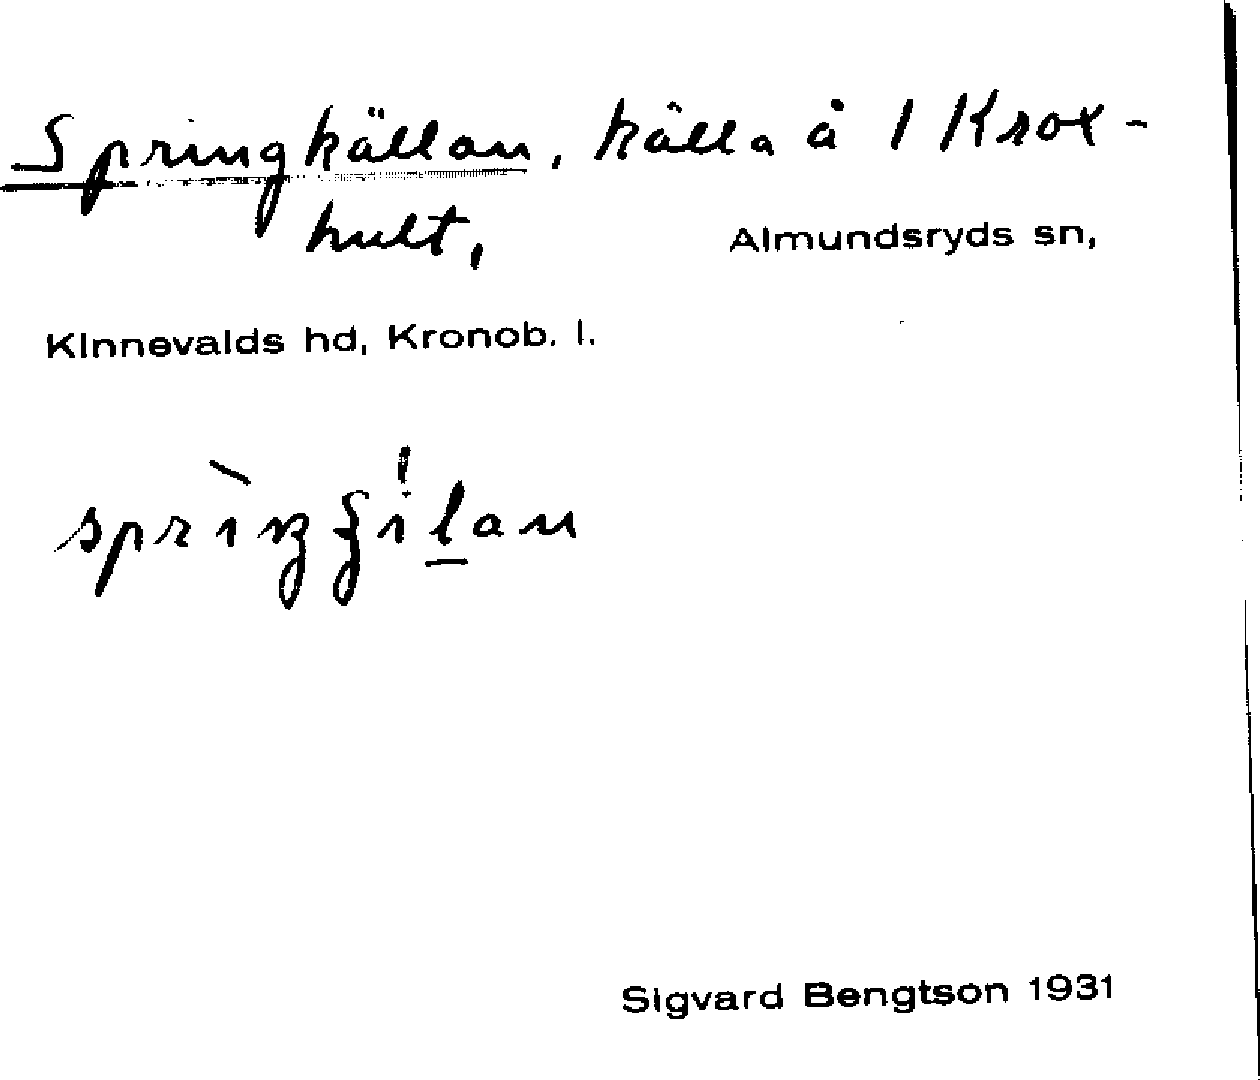 Springkällan, källa å 1 Krox-
hult, Almundsryds sn,
Kinnevalds hd, Kronob. l.
Sigvard Bengtson 1931